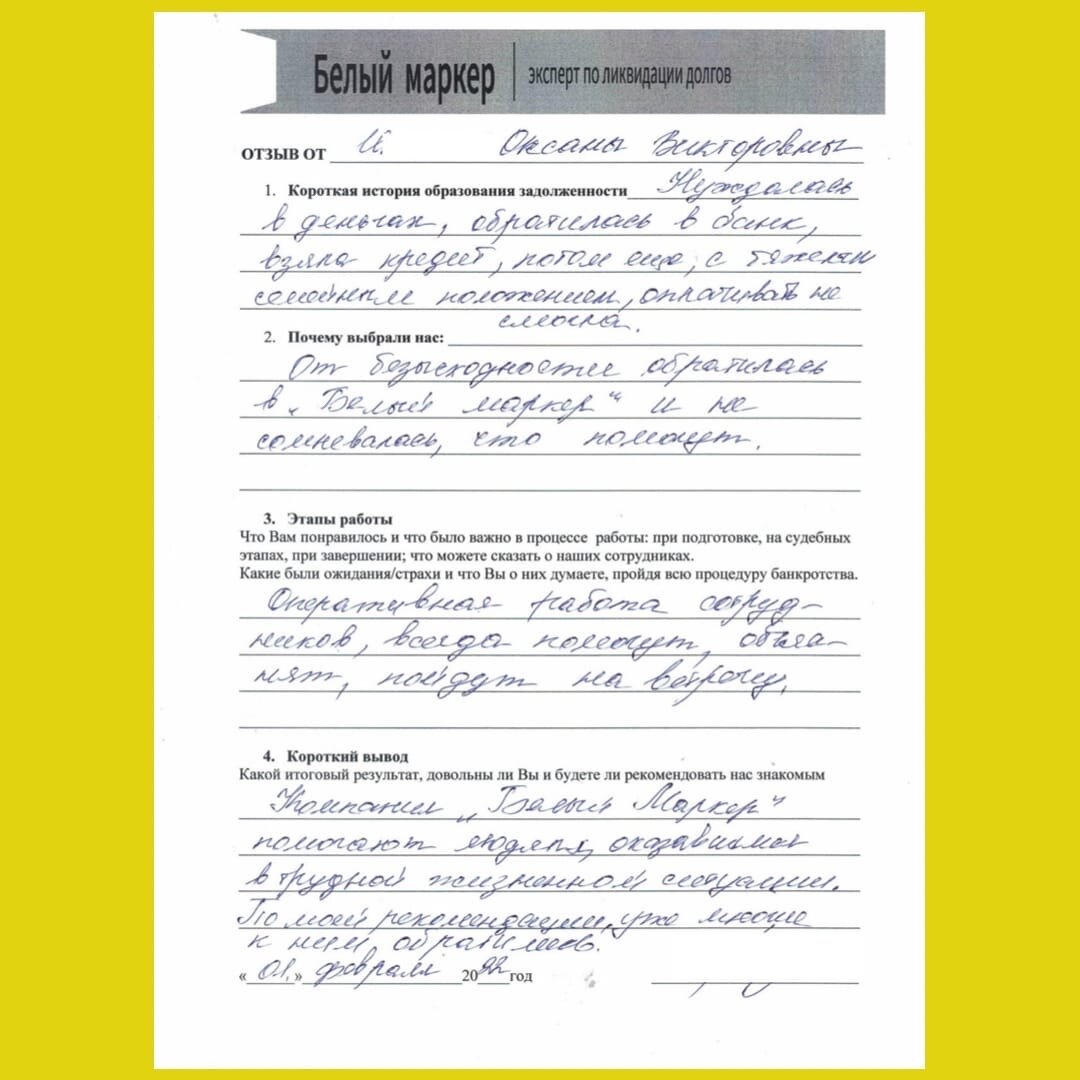 Белый маркер | эксперт по ликвидации долгов
ОТЗЫВ ОТ И. Оксаны Викторовны
1. Короткая история образования задолженности Нуждалась
в деньгах, обратилась в банк,
взяла кредит, потом еще, с тяжелым
семейным положением, оплачивать не
смогла.
2. Почему выбрали нас:
От безысходности обратилась
в "Белый маркер" и не
сомневалась, что помогут.
3. Этапы работы
Что Вам понравилось и что было важно в процессе работы: при подготовке, на судебных
этапах, при завершении; что можете сказать о наших сотрудниках.
Какие были ожидания/страхи и что Вы о них думаете, пройдя всю процедуру банкротства.
Оперативная работа сотруд-
ников, всегда помогут, объяс-
нят, пойдут на встречу.
4. Короткий вывод
Какой итоговый результат, довольны ли Вы и будете ли рекомендовать нас знакомым
Компании "Белый Маркер"
помогают людям, оказавшимся
в трудной жизненной ситуации.
По моей рекомендации, уже многие
к ним обратились.
«01.» февраля 2022 год